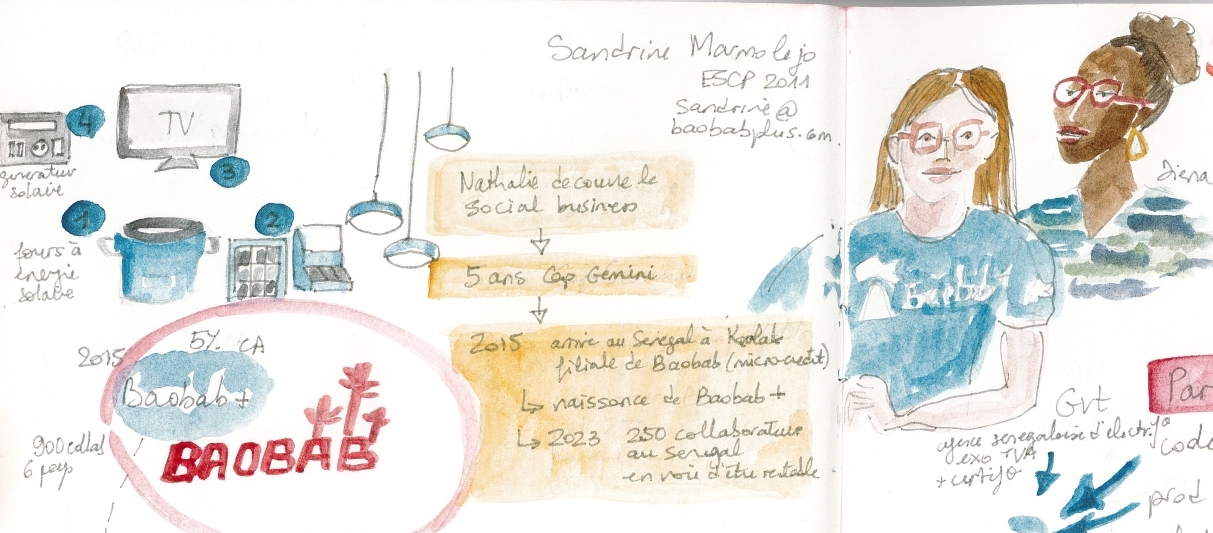 Sandrine Marmolejo
ESCP 2011
sandrine@
baobabplus.com
4
TV
3
générateur
solaire
1
2
fours à
énergie
solaire
Nathalie decouvre le
social business
5 ans Cap Gemini
2015 arrive au Senegal à Koolab
filiale de Baobab (microcredit)
↳ naissance de Baobab+
↳ 2023 250 collaborateurs
au Senegal
en voie d'être rentable
2015
5% CA
Baobab+
BAOBAB
900 collab
6 pays
Baobab
Gvt
agence senegalaise d'electrif°
exo TVA
+ certif°
Par
code
prod